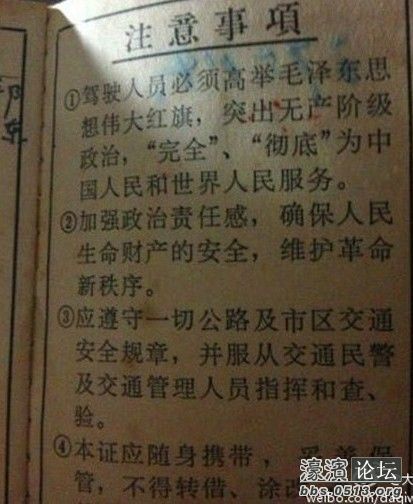 注意事項
①驾驶人员必须高举毛泽东思
想伟大红旗，突出无产阶级
政治，“完全”、“彻底”为中
国人民和世界人民服务。
②加强政治责任感，确保人民
生命财产的安全，维护革命
新秩序。
③应遵守一切公路及市区交通
安全规章，并服从交通民警
及交通管理人员指挥和查、
验。
④本证应随身携带，妥善保
管，不得转借、涂改
濠滨论坛
bbs.0513.org